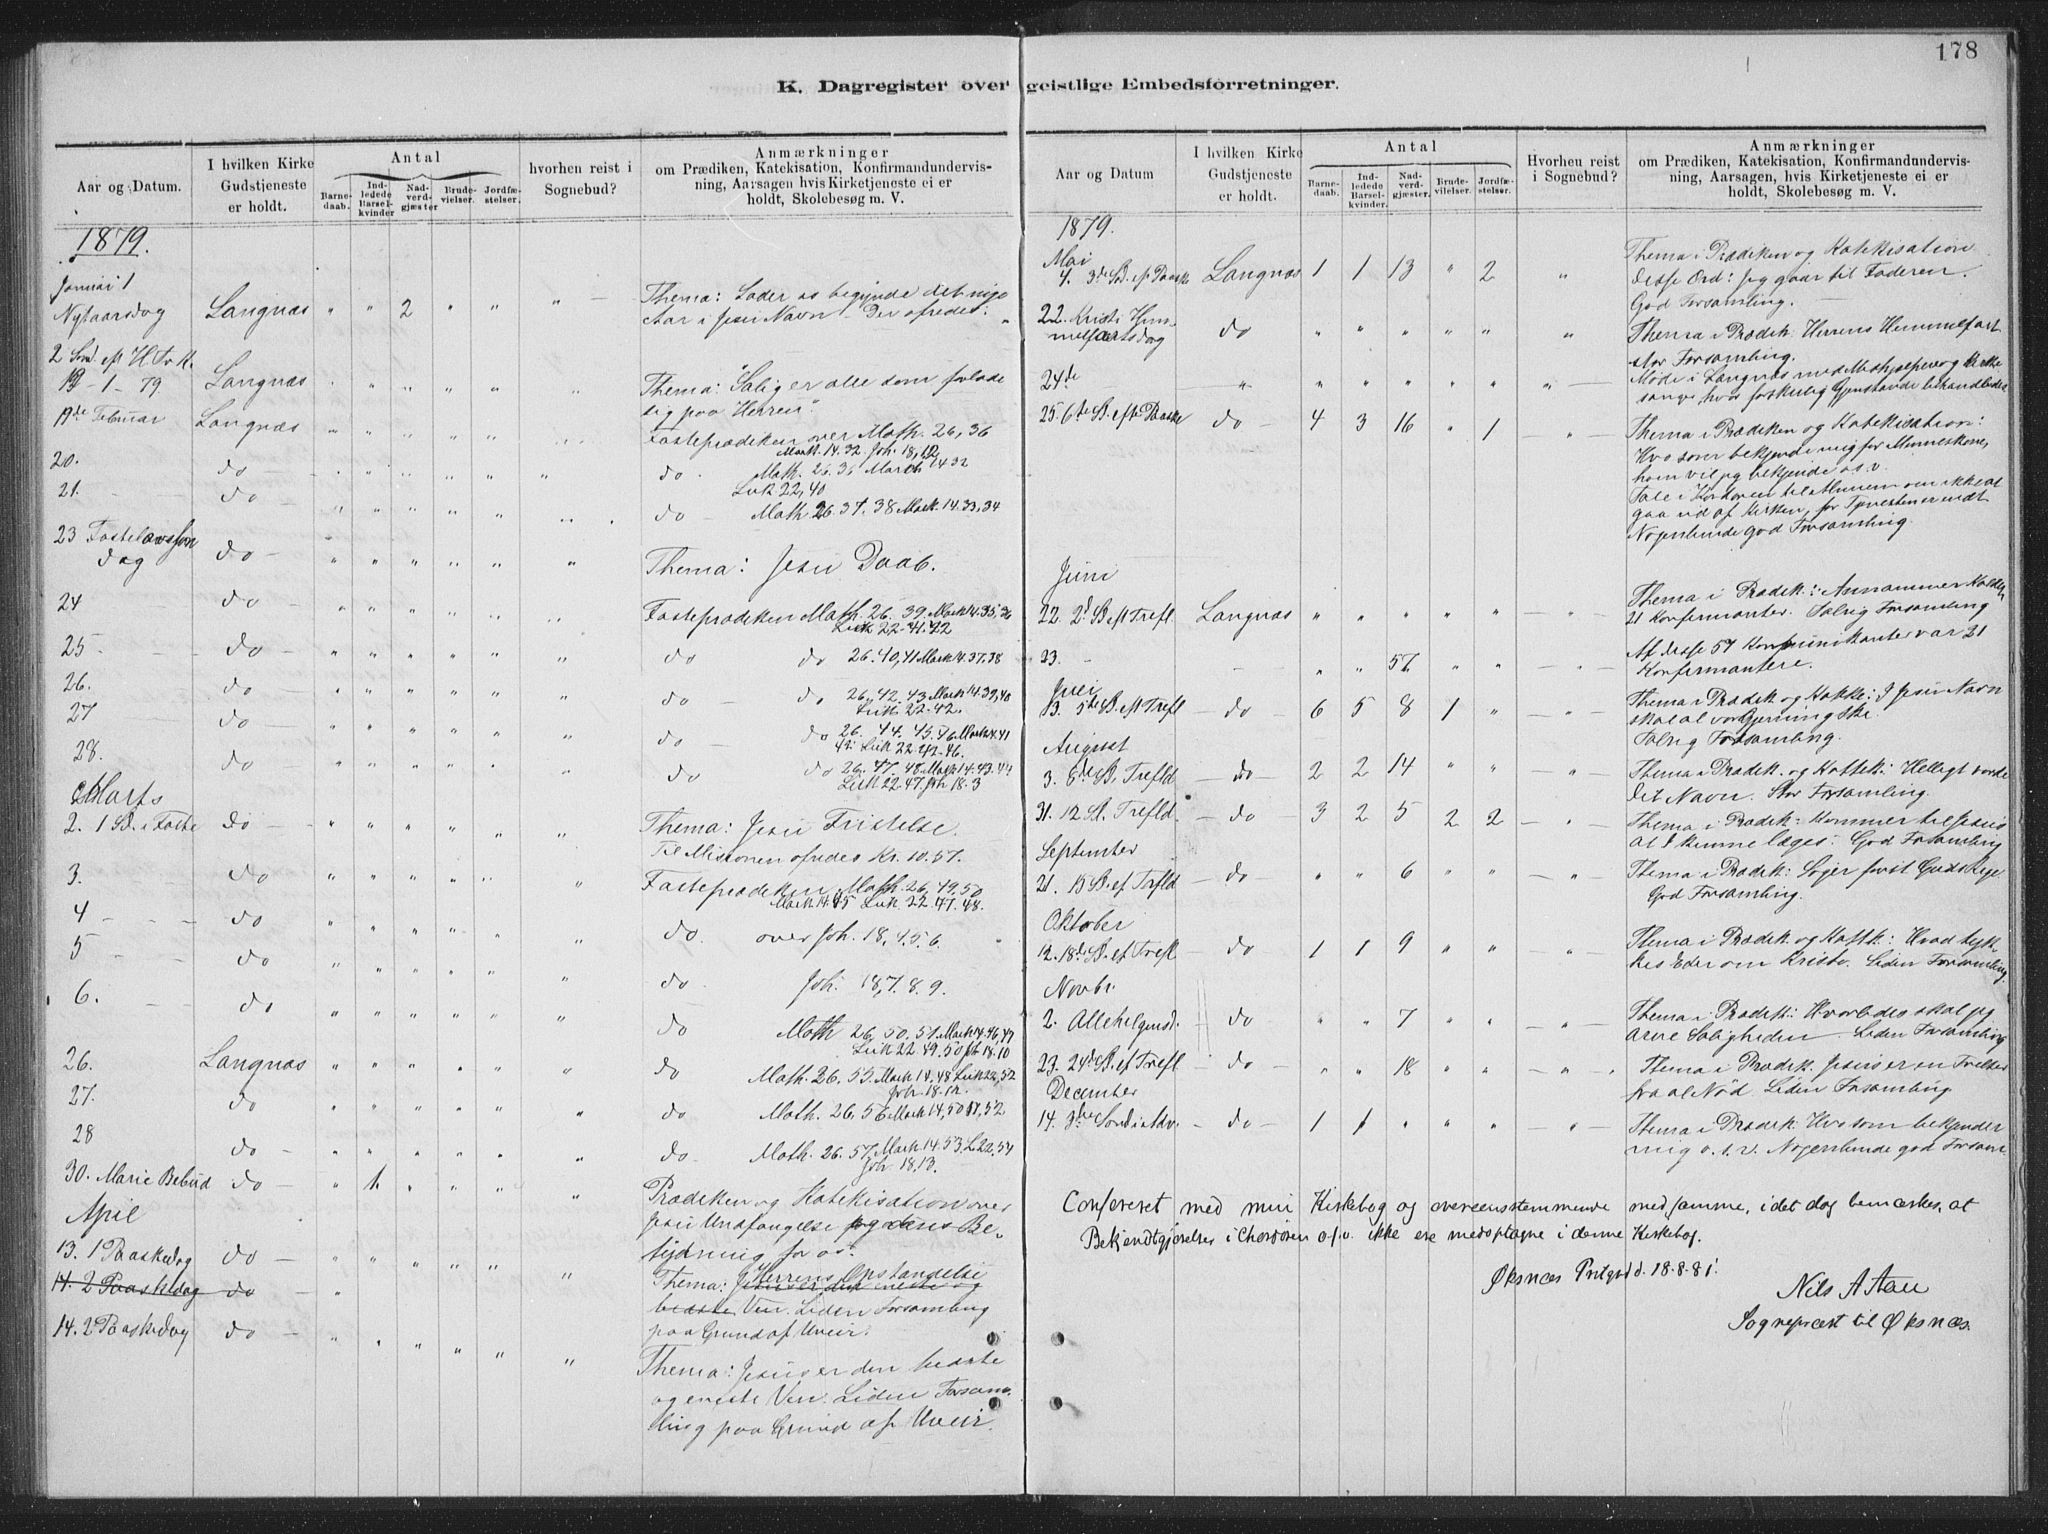 178
K. Dagregister over geistlige Embedsforretninger.
Aar og Datum.
I hvilken Kirke Gudstjeneste er holdt.
Antal
Barnedaab.
Indledede Barselkvinder
Nadverdgjæster
Brudevielser.
Jordfæstelser.
hvorhen reist i Sognebud?
Anmærkninger
om Prædiken, Katekisation, Konfirmandundervisning, Aarsagen hvis Kirketjeneste ei er holdt, Skolebesøg m. V.
1879.
Januari 1
Nytaarsdag Langnæs " " 2 " " " Thema: Lader os begynde det nye
Aar i Jesu Navn – Der ofredes.
2 Sønd. eft H. Tr. K.
19 – 1 – 79. Langnæs " " " " " " Thema: Salig er alle som forlade
sig paa Herren"
19de Februar Langnæs " " " " " Fasteprædiken over Math. 26, 36
Mark. 14.32. Joh. 18,1,2
20. do " " " " " " do. Math. 26.36 March 14 32
Luk 22,40
21. do " " " " " do – Math. 26.37.38 Mark. 14.33,34
23 Fastelavnsøn
dag do " " " " " " Thema: Jesu Daab.
24 do " " " " " Fasteprædiken Math. 26.39. Mark 14.35,36
Luk 22-41.42
25 do " " " " " " do do 26.40,41 Mark 14.37,38
26. do " " " " " " do – do 26.42.43 Mark 14.39,40
Luk. 22-42.
27 do " " " " " " do – do 26. 44. 45.46 Mark 14.41
42: Luk 22.42-46.
28. do " " " " " " do do 26.47.48 Mark 14.43.44
Luk 22.47. Joh 18.3
Marts
2. 1 Sd. i Faste do " " " " " " Thema: Jesu Fristelse.
Til Missionen ofredes Kr. 10.57.
3. do " " " " " " Fasteprædiken Math 26,49.50
Mark 14.45 Luk. 22.47.48.
4 do " " " " " do. over Joh. 18,4.5.6.
5 do " " " " " " do Joh. 18,7.8.9.
6. do " " " " " " do Math 26,50.51 Mark 14.46,47
Luk 22 49.50 Joh 18.10
26. Langnæs " " " " " " do Math. 26.55. Mark 14,48 Luk 22,52
Joh. 18.12.
27. do " " " " " " do Math. 26.56 Mark 14,50 51,52
28 do " " " " " " do. Math. 26.57 Mark 14.53 L. 22,54
Joh. 18.13.
30. Marie Bebud do " 1 " " " " Prædiken og Katekisation over
Jesu Undfangelse og dens Be-
tydning for os.
April
13. 1 Paaskedag do " " " " " " Thema: Herrens Opstandelse
Jesus er den neste og
bedste Ven. Liden Forsamling
paa Grund af Uveir.
14. 2 Paaskedag do "
14. 2 Paaskedag do " " " " " " Thema: Jesus er den bedste
og eneste Ven. Liden Forsam-
ling paa Grund af Uveir.
Aar og Datum
I hvilken Kirke Gudstjeneste er holdt.
Antal
Barnedaab.
Indledede Barselkvinder.
Nadverdgjæster.
Brudevielser.
Jordfæstelser.
Hvorheu reist i Sognebud?
Anmærkninger
om Prædiken, Katekisation, Konfirmandundervisning, Aarsagen, hvis Kirketjeneste ei er holdt, Skolebesøg m. V.
1879.
Mai
4. 3de Sd. eft Paaske Langnæs 1 1 13 " 2 " Thema i Prædiken og Katekisation
disse Ord: Jeg gaar til Faderen.
God Forsamling.
22. Kristi Him-
melfartsdag do " " " " " " Thema i Prædik: Herrens Himmelfart
stor Forsamling.
24de " " " " " " " Møde i Langnæs med Medhjelper og Kirke
sanger, hvor forskjellig Gjenstande behandledes
25. 6te Sd. eft. Paaske do 4 3 16 " 1 " Thema i Prædiken og Katekisation:
Hvo som bekjender mig for Menneskene,
ham vil jeg bekjende o.s.v.
Tale i Kordøren til Almuen om ikke at
gaa ud af Kirken, før Tjenesten er endt
Nogenlunde god Forsamling.
Juni
22. 2d Sd. eft Trefl. Langnæs " " " " " " Thema i Prædik: Annammer
21 Konfirmanter. Talrig Forsamling
23. " " 57 " " " Af disse 57 Kommunikanter var 21
Konfirmantere.
Juli
13. 5te Sd. eft Trefl do 6 5 8 1 " " Thema i Prædik og Katek: I Jesu Navn
skal al vor Gjerning ske.
Talrig Forsamling.
August
3. 8de Sd. Trefld do 2 2 14 " " " Thema i Prædik. og Kattek: Helligt vorde
dit Navn. Stor Forsamling.
31. 12 Sd. Trefld. do 3 2 5 2 2 " Thema i Prædik: Kommer til Jesus
at I kunne læges. God Forsamling
September
21. 15 Sd. ef Trefld do " " 6 " " " Thema i Prædik: Søger først Guds Rige.
God Forsamling.
Oktober
12. 18de Sd. ef Trefl. do 1 1 9 " " " Thema i Prædik og Katek: Hvad tyk-
kes Eder om Kristo. Liden Forsamling.
Novbr.
2. Allehelgensd. do " " 7 " " " Thema i Prædik: Hvorledes skal jeg
arve Saligheden. Liden Forsamling
23. 24de Sd. ef Trefl. do " " 18 " " " Thema i Prædik. Jesus er en Frelser
fra al Nød. Liden Forsamling
December
14. 3die Sønd i Adv. do 1 1 " " " " Thema i Prædik: Hvo som bekjender
mig o.s.v. Nogenlunde god Forsaml.
Confereret med min Kirkebog og overensstemmende med samme, idet dog bemærkes, at
Bekjendtgjørelser i Chordøren o.s.v. ikke ere medoptagne i denne Kirkebog.
Øksnæs Prstgrd d. 18-8-81.
Nils A Aau
Sognepræst til Øksnæs.